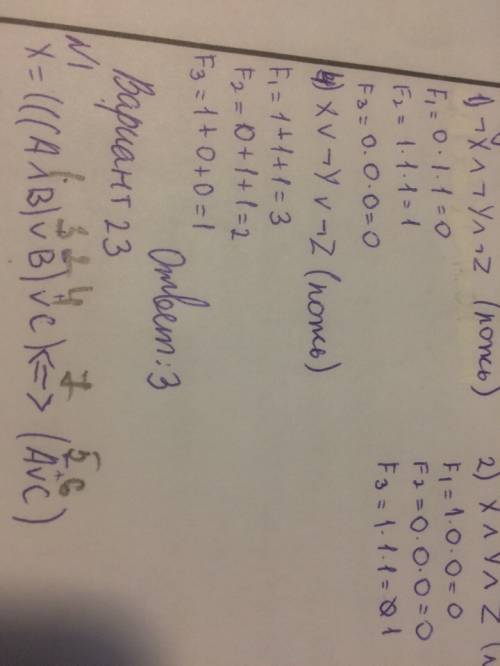 1) ¬X∧¬Y∧¬Z (ложь)
F₁ = 0·1·1=0
F₂ = 1·1·1=1
F₃ = 0·0·0=0
2) X∧Y∧Z
F₁=1·0·0=0
F₂=0·0·0=0
F₃=1·1·1=1
4) X∨¬Y∨¬Z (ложь)
F₁=1+1+1=3
F₂=0+1+1=2
F₃=1+0+0=1
Ответ: 3
Вариант 23
N1
1 3 2 4 7 5 6
X=(((A∧B)∨B)∨C)<=>(A∨C)